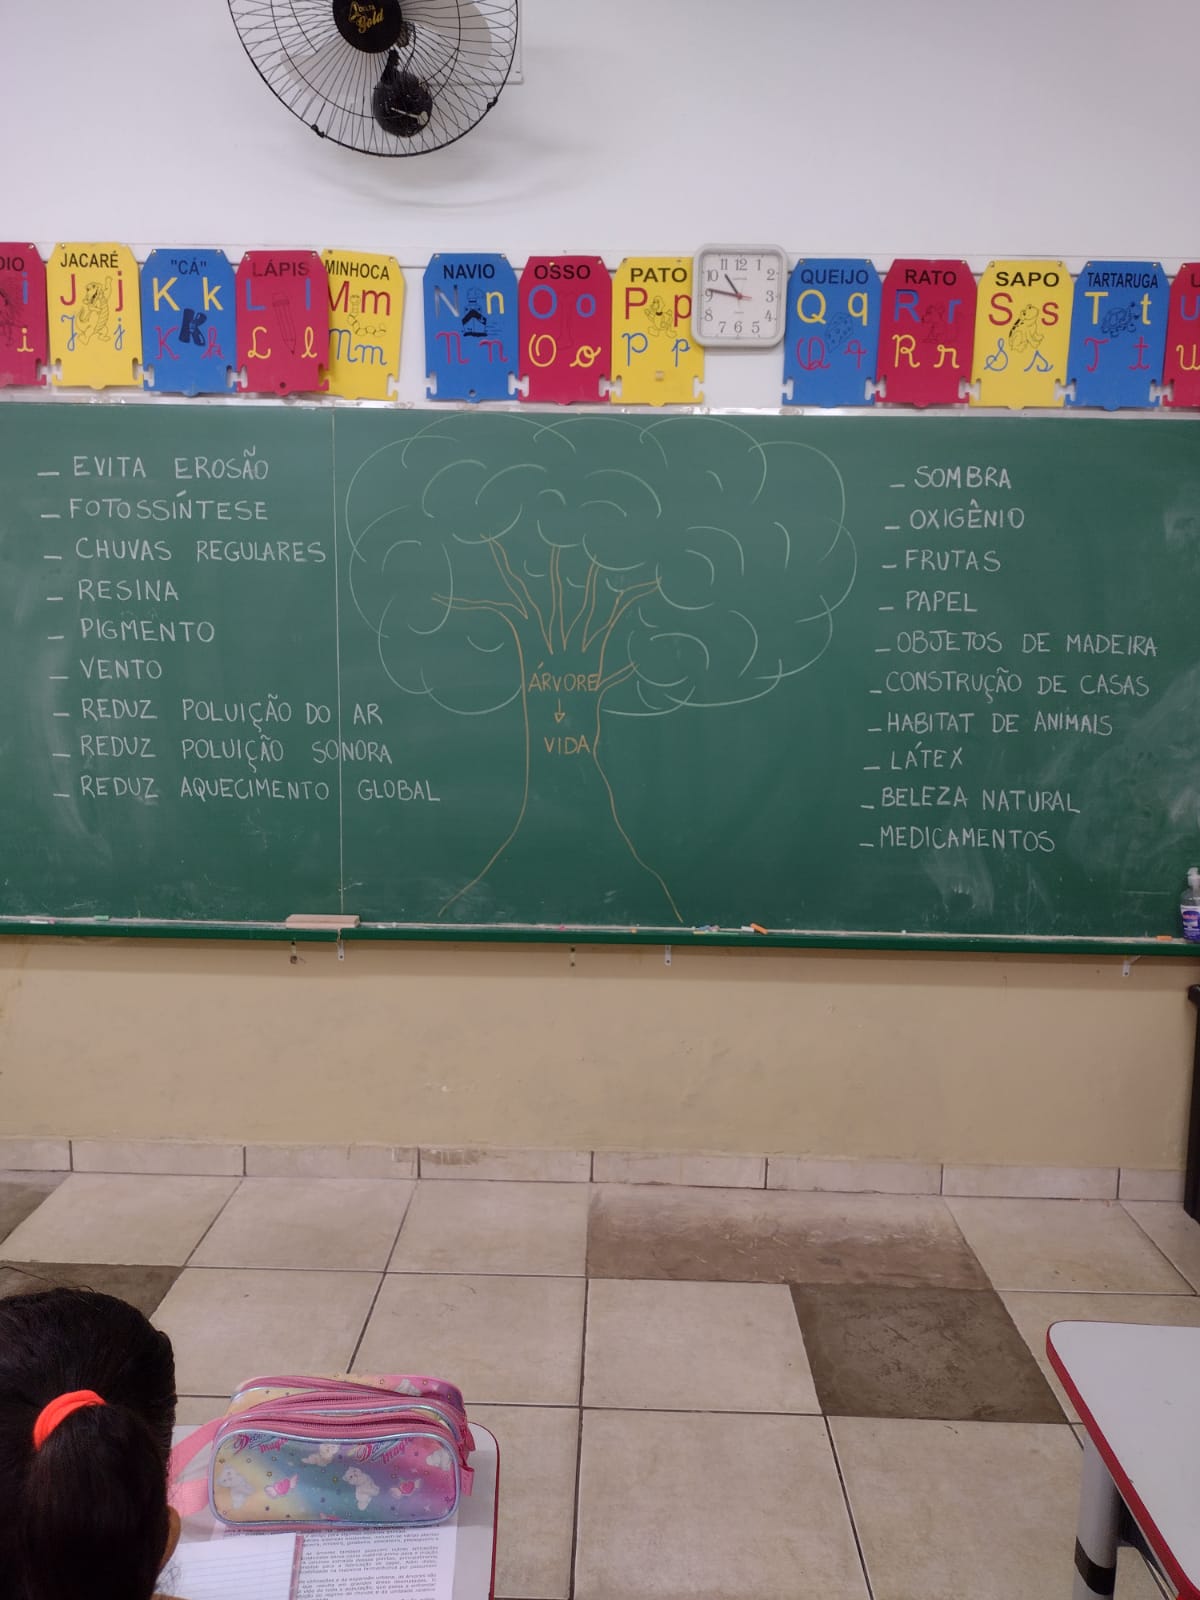 DELTA
Gold
DIO
i
i
JACARÉ
J j
J j
"CÁ"
K k
K k
LÁPIS
L l
L l
MINHOCA
M m
M m
NAVIO
N n
N n
OSSO
O o
O o
PATO
P p
P p
11 12 1
10 2
9 3
8 4
7 6 5
QUEIJO
Q q
Q q
RATO
R r
R r
SAPO
S s
S s
TARTARUGA
T t
T t
U
U
U
_ EVITA EROSÃO
_ FOTOSSÍNTESE
_ CHUVAS REGULARES
_ RESINA
_ PIGMENTO
_ VENTO
_ REDUZ POLUIÇÃO DO AR
_ REDUZ POLUIÇÃO SONORA
_ REDUZ AQUECIMENTO GLOBAL
ÁRVORE
↓
VIDA
_ SOMBRA
_ OXIGÊNIO
_ FRUTAS
_ PAPEL
_ OBJETOS DE MADEIRA
_ CONSTRUÇÃO DE CASAS
_ HABITAT DE ANIMAIS
_ LÁTEX
_ BELEZA NATURAL
_ MEDICAMENTOS